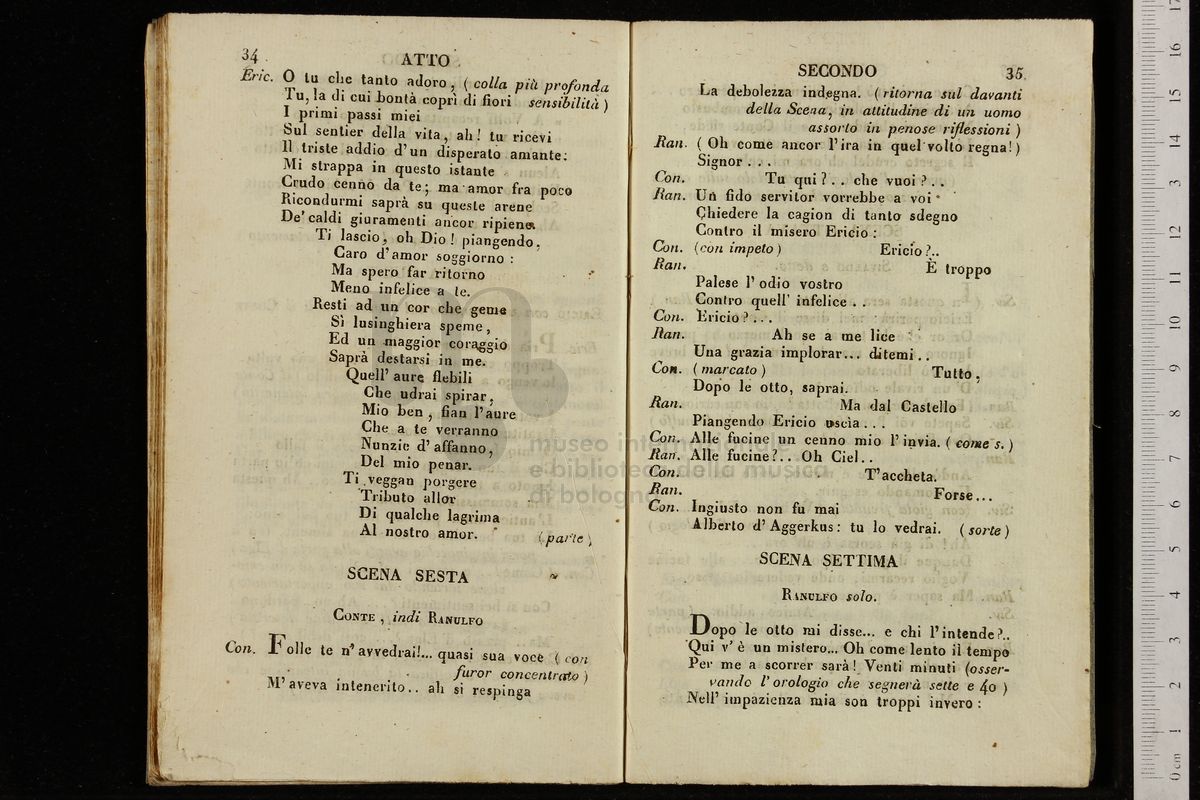 34
ATTO
Eric. O tu che tanto adoro, ( colla più profonda
Tu, la di cui bontà coprì di fiori sensibilità )
I primi passi miei
Sul sentier della vita, ah! tu ricevi
Il triste addio d'un disperato amante:
Mi strappa in questo istante
Crudo cenno da te; ma amor fra poco
Ricondurmi saprà su queste arene
De' caldi giuramenti ancor ripiene.
Ti lascio, oh Dio! piangendo,
Caro d'amor soggiorno :
Ma spero far ritorno
Meno infelice a te.
Resti ad un cor che geme
Sì lusinghiera speme,
Ed un maggior coraggio
Saprà destarsi in me.
Quell' aure flebili
Che udrai spirar,
Mio ben, fian l'aure
Che a te verranno
Nunzie d'affanno,
Del mio penar.
Ti veggan porgere
Tributo allor
Di qualche lagrima
Al nostro amor. (parte)
SCENA SESTA
CONTE, indi RANULFO
Con. Folle te n'avvedrai!... quasi sua voce ( con
furor concentrato )
M'aveva intenerito.. ah si respinga
SECONDO
35
La debolezza indegna. (ritorna sul davanti
della Scena, in attitudine di un uomo
assorto in penose riflessioni )
Ran. ( Oh come ancor l'ira in quel volto regna!)
Signor . . .
Con. Tu qui? . . che vuoi? . .
Ran. Un fido servitor vorrebbe a voi
Chiedere la cagion di tanto sdegno
Contro il misero Ericio :
Con. (con impeto) Ericio?..
Ran. È troppo
Palese l'odio vostro
Contro quell' infelice . .
Con. Ericio? . . .
Ran. Ah se a me lice
Una grazia implorar... ditemi . .
Con. ( marcato ) Tutto,
Dopo le otto, saprai.
Ran. Ma dal Castello
Piangendo Ericio uscìa . . .
Con. Alle fucine un cenno mio l'invia. ( come s. )
Ran. Alle fucine?.. Oh Ciel..
Con. T'accheta.
Ran. Forse...
Con. Ingiusto non fu mai
Alberto d'Aggerkus: tu lo vedrai. (sorte)
SCENA SETTIMA
RANULFO solo.
Dopo le otto mi disse... e chi l'intende?..
Qui v'è un mistero... Oh come lento il tempo
Per me a scorrer sarà! Venti minuti (osser-
vando l'orologio che segnerà sette e 40 )
Nell' impazienza mia son troppi invero :
museo internazionale
e biblioteca della musica
di bologna
0 cm 1 2 3 4 5 6 7 8 9 10 11 12 13 14 15 16 17